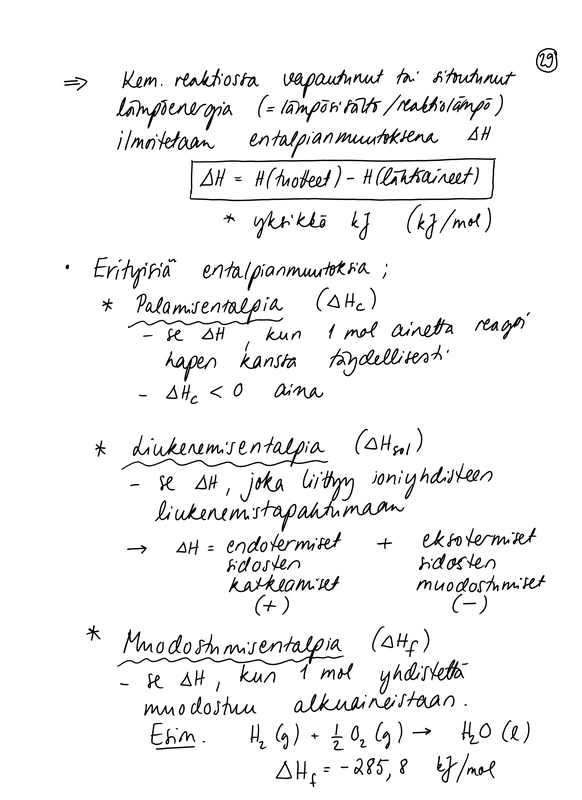 29
⇒ Kem. reaktiossa vapautunut tai sitoutunut
lämpöenergia (= lämpösisältö/reaktiolämpö)
ilmoitetaan entalpianmuutoksena ΔH
ΔH = H(tuotteet) - H(lähtöaineet)
* yksikkö kJ (kJ/mol)
• Erityisiä entalpianmuutoksia ;
* Palamisentalpia (ΔHc)
- se ΔH, kun 1 mol ainetta reagoi
hapen kanssa täydellisesti
- ΔHc < 0 aina
* Liukenemisentalpia (ΔHsol)
- se ΔH, joka liittyy ioniyhdisteen
liukenemistapahtumaan
→ ΔH = endotermiset + eksotermiset
sidosten sidosten
katkeamiset muodostumiset
(+) (-)
* Muodostumisentalpia (ΔHf)
- se ΔH, kun 1 mol yhdistettä
muodostuu alkuaineistaan.
Esim. H₂ (g) + ½ O₂ (g) → H₂O (l)
ΔHf = -285,8 kJ/mol